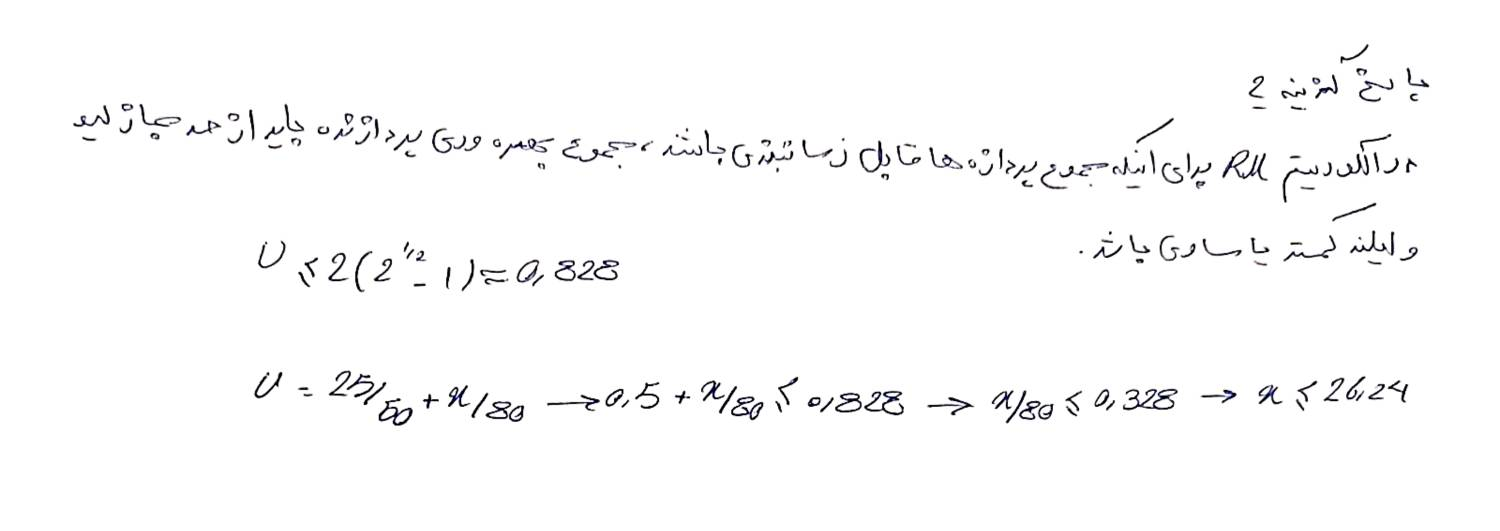 پاسخ گزینه 2
در الگوریتم RM برای اینکه مجموع پردازه ها قابل زمانبندی باشند، مجموع بهره وری پردازنده باید از حد مجاز لیو
و لیلند کمتر یا مساوی باشد.
U ≤ 2(2^1/2 - 1) ≈ 0,828
U = 25/50 + x/80 → 0,5 + x/80 ≤ 0,828 → x/80 ≤ 0,328 → x ≤ 26,24